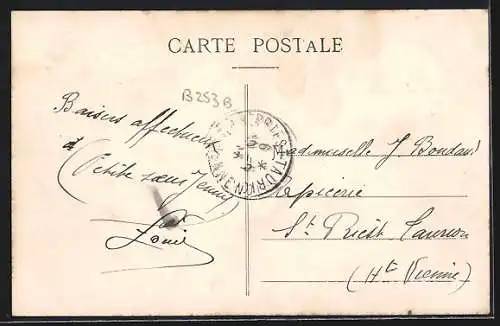 CARTE POSTALE
B253B
Baisers affectueux
à
(Petite sœur Jenny)
Louis
Mademoiselle J Boudaud
Epicerie
St Priest Taurion
(Hte Vienne)
ST PRIEST-TAURION